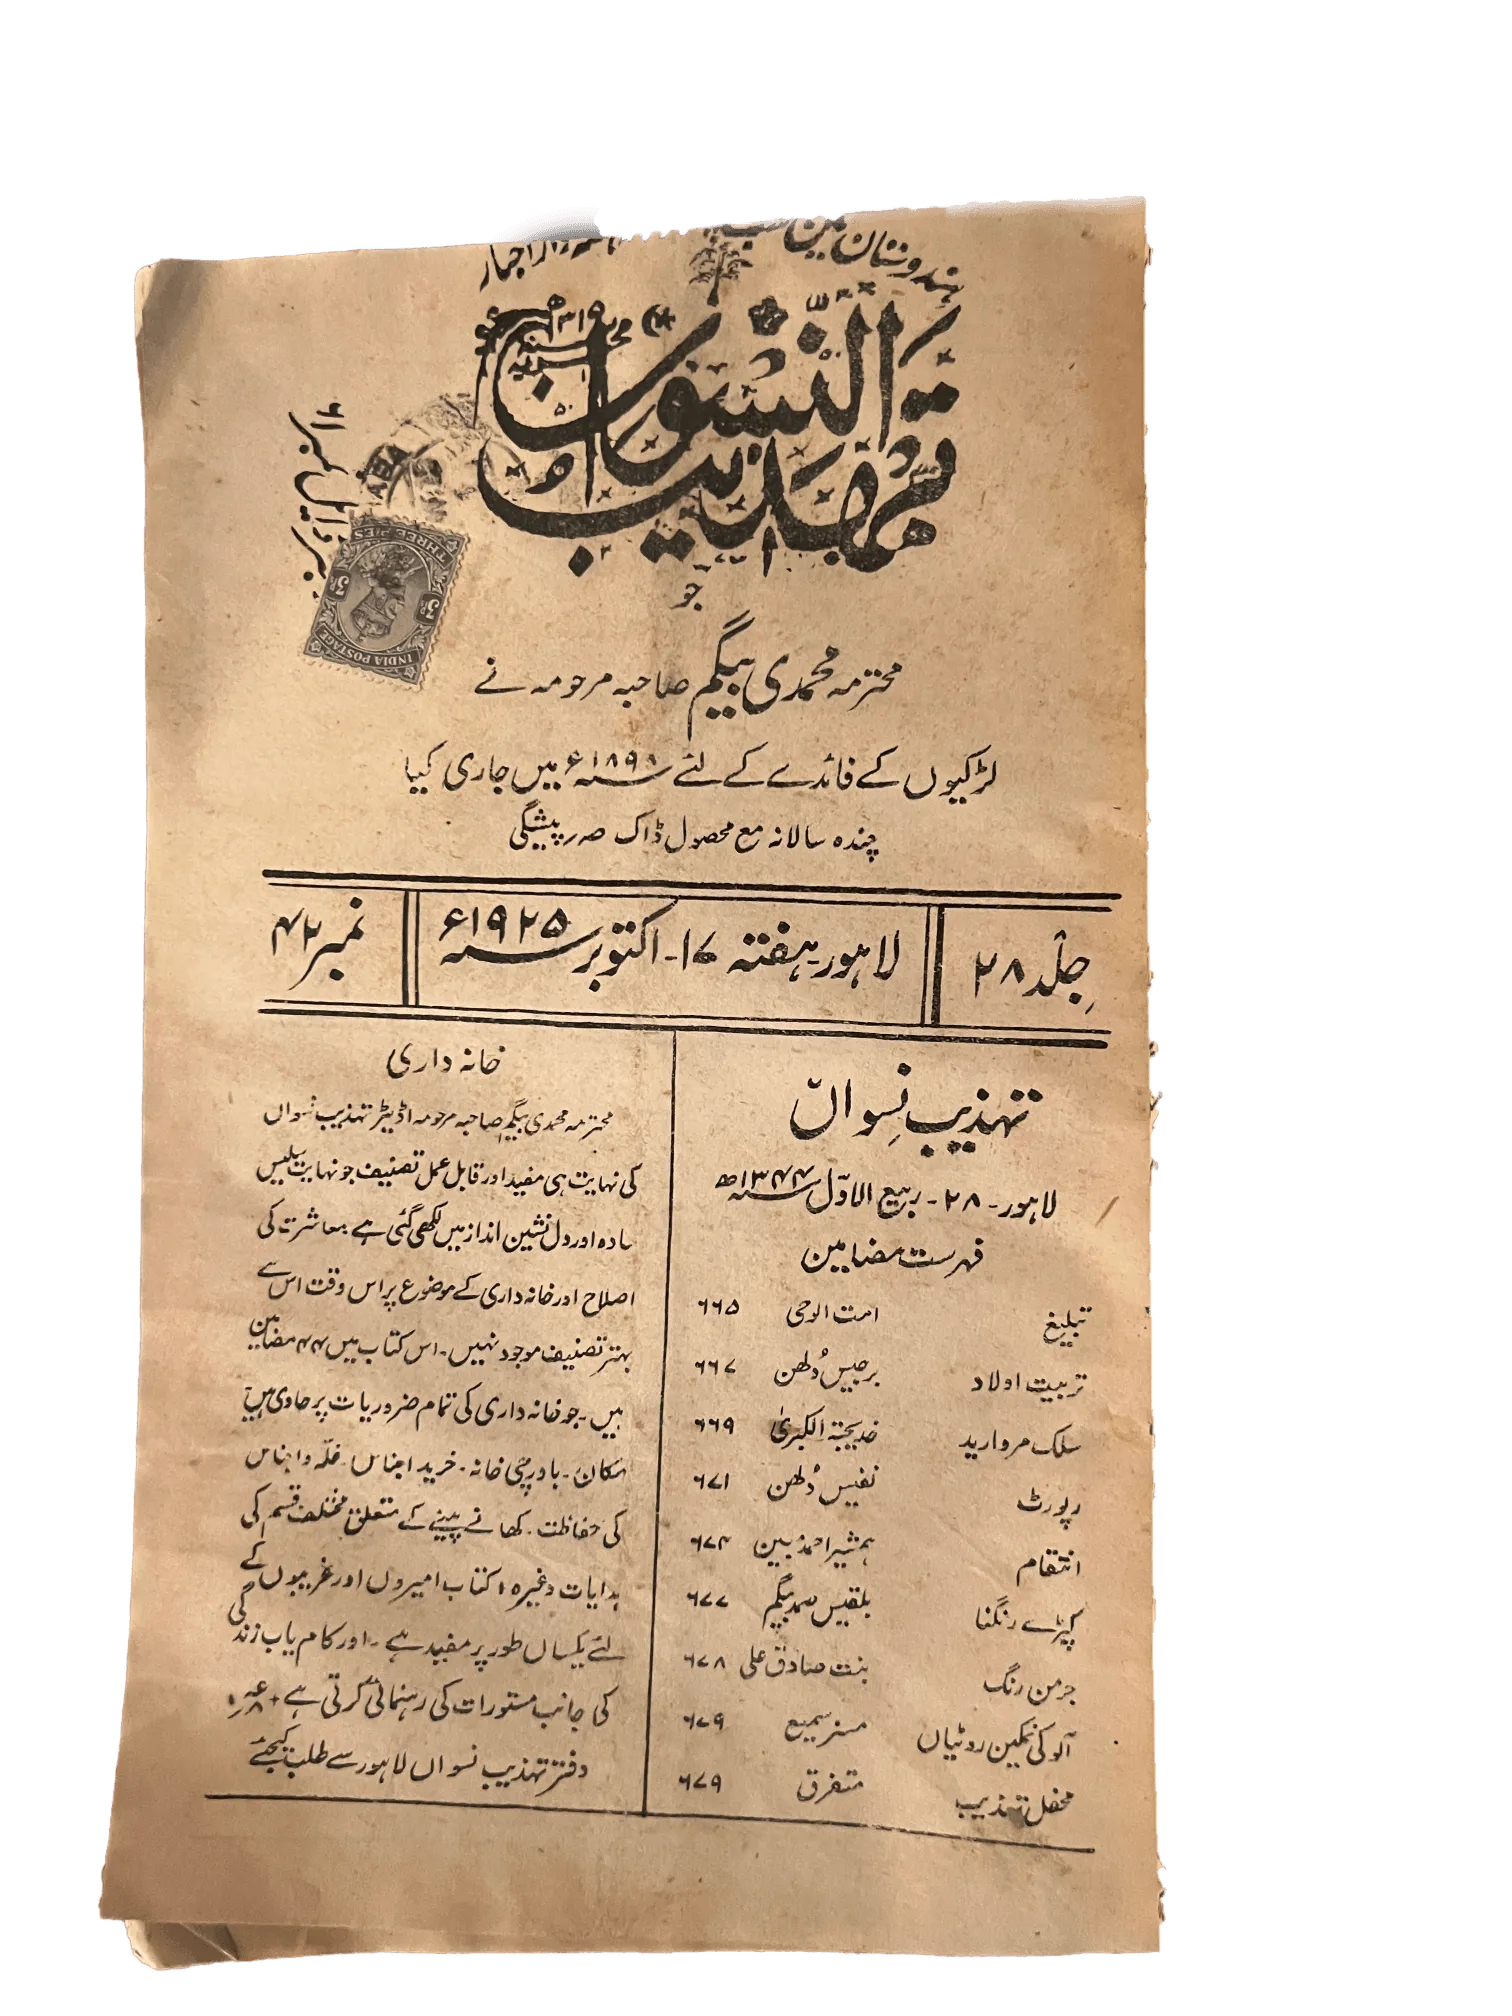 ہندوستان میں سب
تہذیب النسواں
THREE PIES
INDIA POSTAGE
جو
محترمہ محمدی بیگم صاحبہ مرحومہ نے
لڑکیوں کے فائدے کے لئے سنہ ۱۸۹۸ء میں جاری کیا
چندہ سالانہ مع محصول ڈاک صہ ر پیشگی
جلد ۲۸
لاہور۔ ہفتہ ۱۷۔ اکتوبر سنہ ۱۹۲۵ء
نمبر ۴۲
تہذیب نسواں
لاہور۔ ۲۸۔ ربیع الاول سنہ ۱۳۴۴ھ
فہرست مضامین
تبلیغ امت الوحی ۶۶۵
تربیت اولاد برجیس دُلھن ۶۶۷
سلک مروارید خدیجۃ الکبریٰ ۶۶۹
رپورٹ نفیس دُلھن ۶۷۱
انتقام ہمشیر احمد مبین ۶۷۴
کپڑے رنگنا بلقیس صمد بیگم ۶۷۷
جرمن رنگ بنت صادق علی ۶۷۸
آلو کی نمکین روٹیاں مسز سمیع ۶۷۹
محفل تہذیب متفرق ۶۷۹
خانہ داری
محترمہ محمدی بیگم صاحبہ مرحومہ اڈیٹر تہذیب نسواں
کی نہایت ہی مفید اور قابل عمل تصنیف جو نہایت سلیس
سادہ اور دل نشین انداز میں لکھی گئی ہے۔ معاشرت کی
اصلاح اور خانہ داری کے موضوع پر اس وقت اس سے
بہتر تصنیف موجود نہیں۔ اس کتاب میں ۴۴ مضامین
ہیں۔ جو خانہ داری کی تمام ضروریات پر حاوی ہیں
مکان۔ باورچی خانہ۔ خرید اجناس۔ غلہ و اجناس
کی حفاظت۔ کھانے پینے کے متعلق مختلف قسم کی
ہدایات وغیرہ، کتاب امیروں اور غریبوں کے
لئے یکساں طور پر مفید ہے۔ اور کام یاب زندگی
کی جانب مستورات کی رہنمائی کرتی ہے
دفتر تہذیب نسواں لاہور سے طلب کیجئے